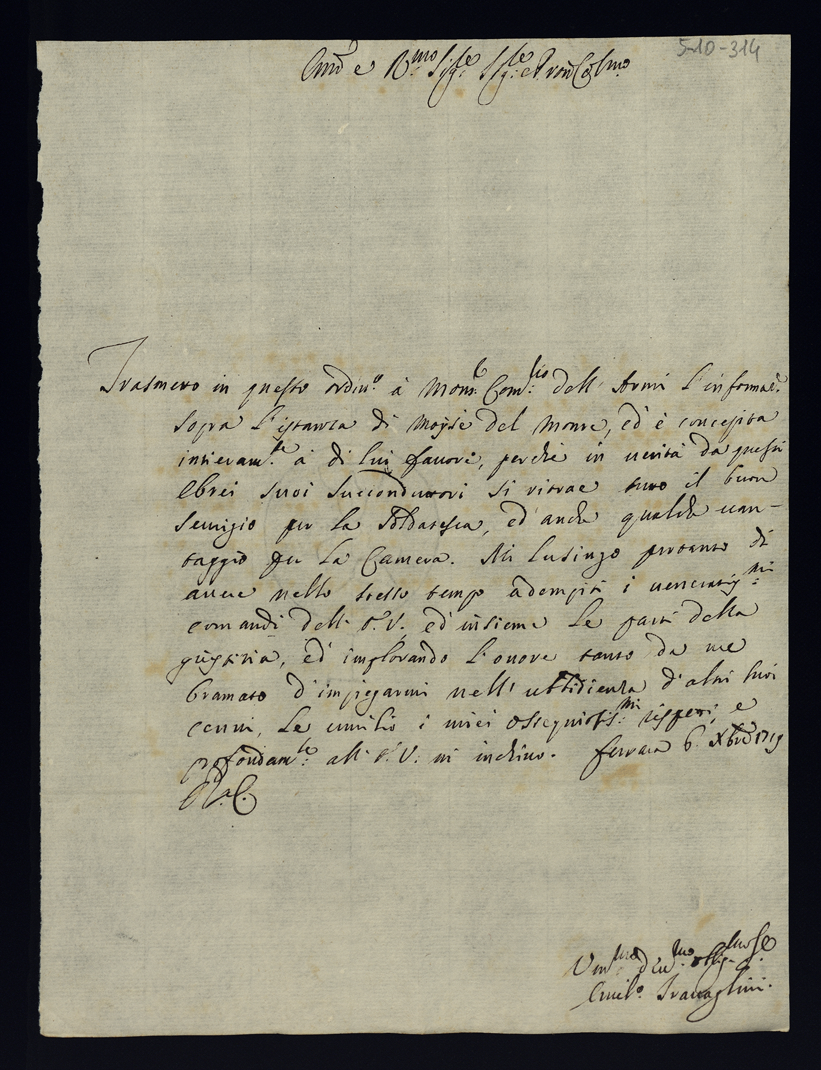 5-10-314
Em.º e R.mo Sig.re Sig.re e Pron Col.mo
Trasmetto in questo ordin.º à Mons.r Com.rio dell' Armi l'informaz.e
sopra l'istanza di Moisè del Monte, ed è concepita
intieram.te à di lui favore, perche in verità da questi
Ebrei suoi Succonduttori si ritrae tutto il buon
Servigio per la Soldatesca, ed' anche qualche van-
taggio per la Camera. Mi lusingo pertanto di
avere nello stesso tempo adempiti i veneratis.mi
comandi dell' E.V. ed' insieme le parti della
giustizia, ed' implorando l'onore tanto da me
bramato d'impiegarmi nell' ubbidienza d'altri suoi
cenni, le umilio i miei ossequiosis.mi rispetti, e
profondam.te all' E.V. mi inchino. Ferrara 6. Xbre 1719
D. V. E.
Um.mo Dev.mo Obblig.mo Se.
Emil.º Travaglini.